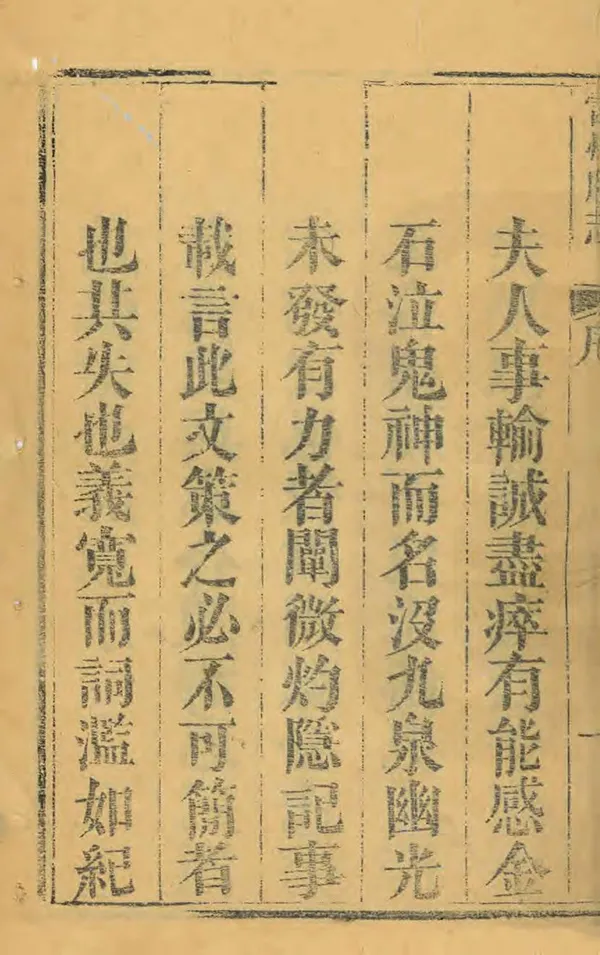 夫人事輸誠盡瘁有能感金
石泣鬼神而名沒九泉幽光
未發有力者闡微灼隱記事
載言此文策之必不可節者
也共失也義寬而詞濫如紀